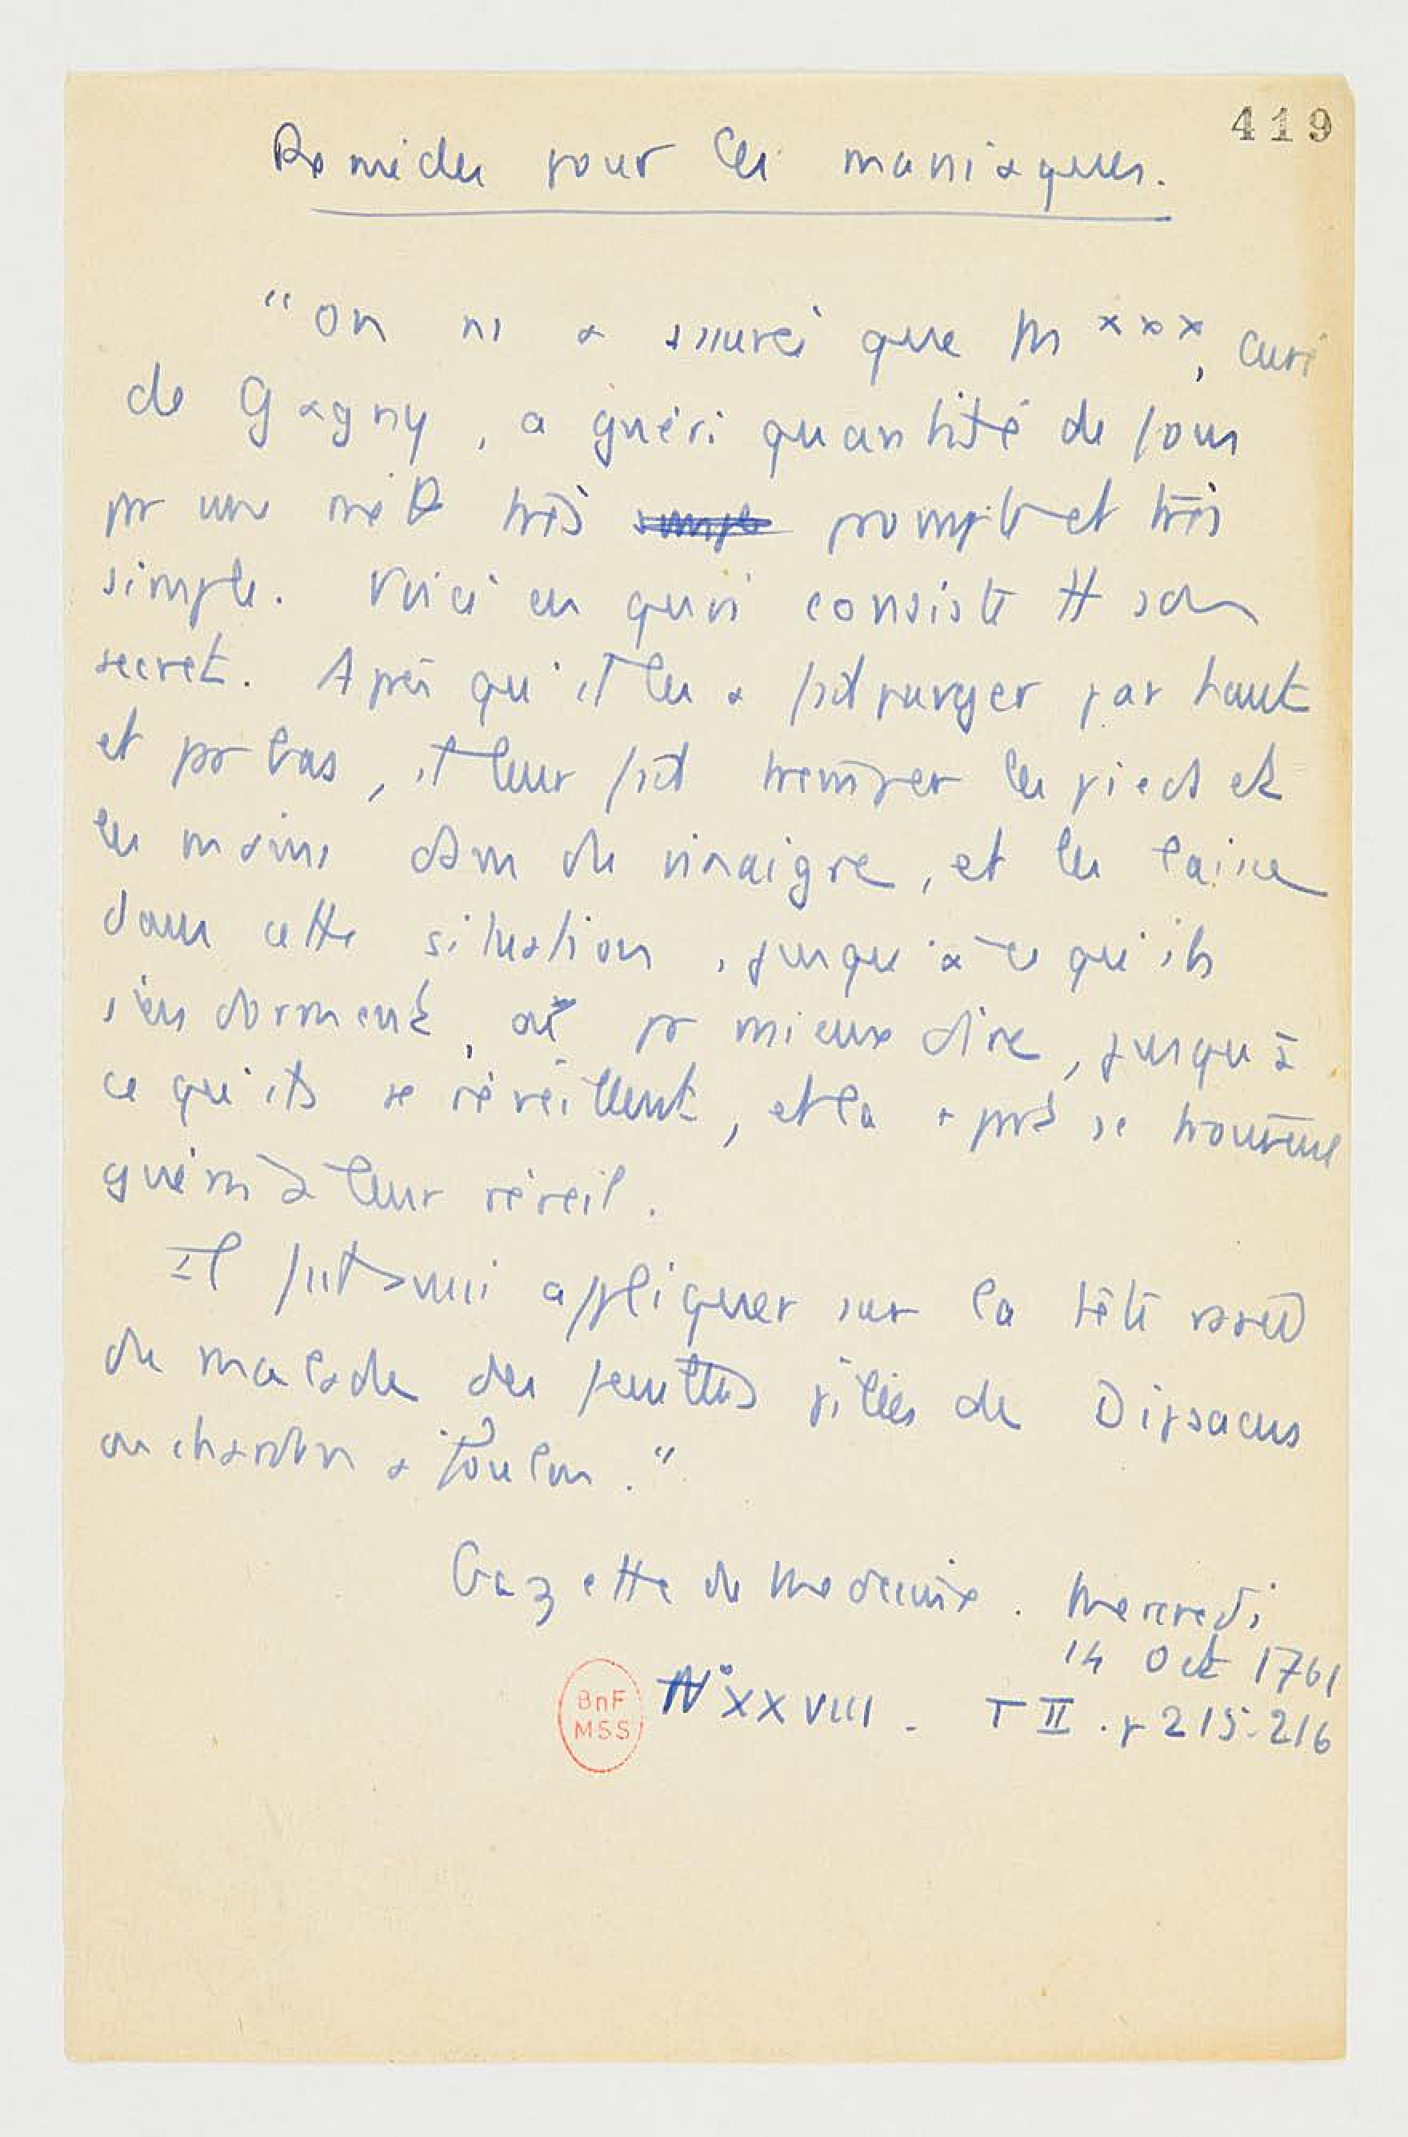 419
Remèdes pour les maniaques.
"On m'a assuré que M xxx, curé
de Gagny, a guéri quantité de fous
pr une mé très simple prompte et très
simple. Voici en quoi consiste tt son
secret. Après qu'il les a fait purger par haut
et pr bas, il leur fait tremper les pieds et
les mains dans du vinaigre, et les laisse
dans cette situation, jusqu'à ce qu'ils
s'endorment, ou pr mieux dire, jusqu'à
ce qu'ils se réveillent, et la après se trouvent
guéris à leur réveil.
Il fait aussi appliquer sur la tête rasée
du malade des feuilles pilées de Dipsacus
ou chardon à foulon."
Gazette de Médecine. Mercredi
14 Oct 1761
N° XXVIII - T II . p 215-216
BnF
MSS